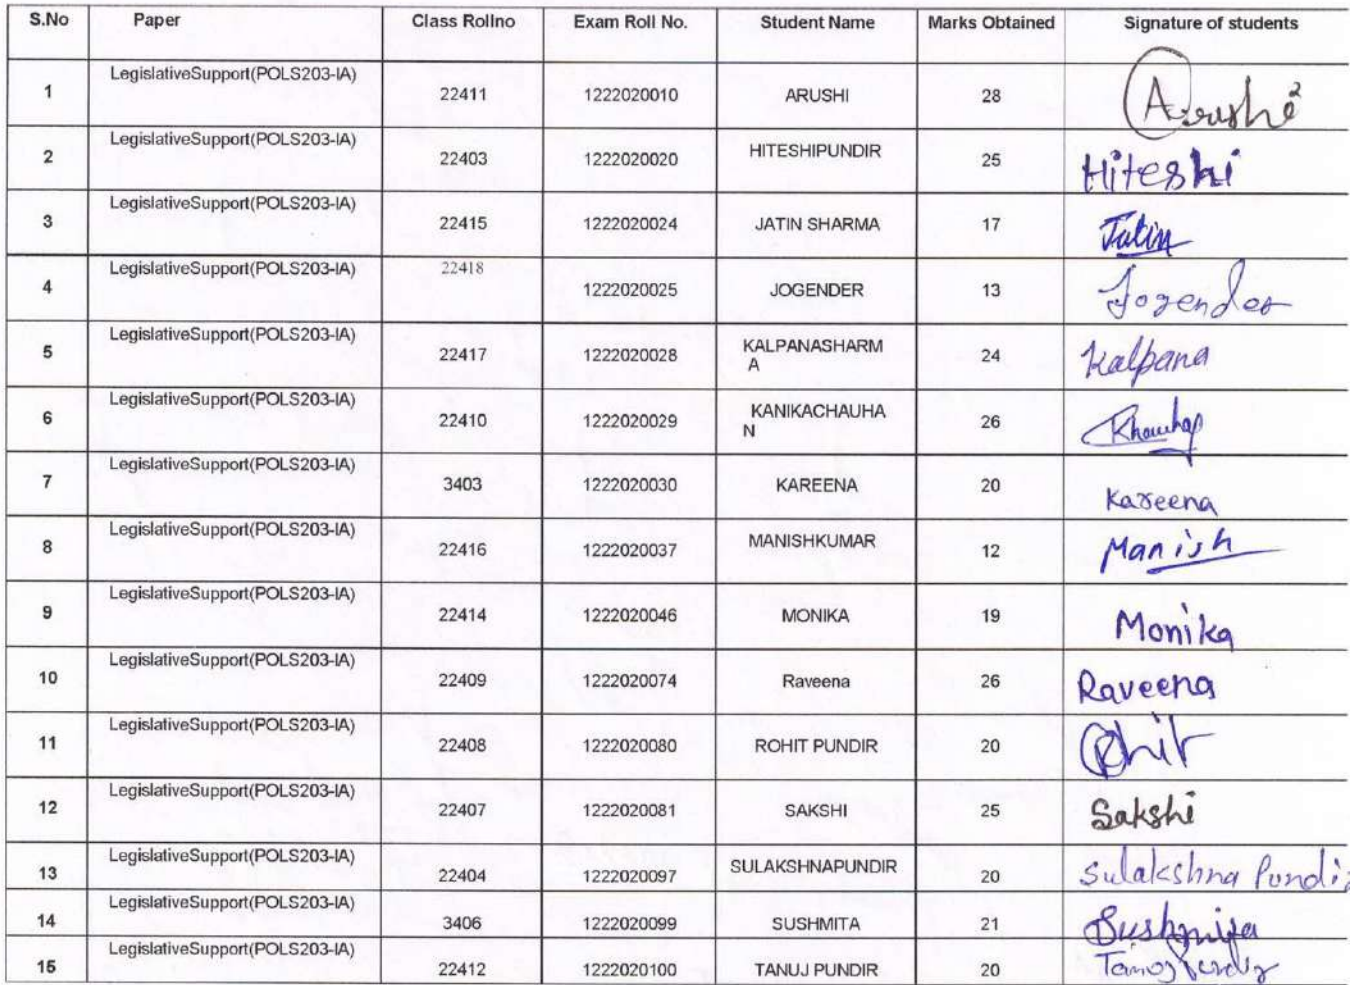 S.No Paper Class Rollno Exam Roll No. Student Name Marks Obtained Signature of students
LegislativeSupport(POLS203-IA)
1 22411 1222020010 ARUSHI 28 Arushi
LegislativeSupport(POLS203-IA)
2 22403 1222020020 HITESHIPUNDIR 25 Hiteshi
LegislativeSupport(POLS203-IA)
3 22415 1222020024 JATIN SHARMA 17 Jatin
LegislativeSupport(POLS203-IA) 22418
4 1222020025 JOGENDER 13 Jogender
LegislativeSupport(POLS203-IA)
5 22417 1222020028 KALPANASHARM 24 Kalpana
A
LegislativeSupport(POLS203-IA)
6 22410 1222020029 KANIKACHAUHA 26
N
LegislativeSupport(POLS203-IA)
7 3403 1222020030 KAREENA 20 Kareena
LegislativeSupport(POLS203-IA)
8 22416 1222020037 MANISHKUMAR 12 Manish
LegislativeSupport(POLS203-IA)
9 22414 1222020046 MONIKA 19 Monika
LegislativeSupport(POLS203-IA)
10 22409 1222020074 Raveena 26 Raveena
LegislativeSupport(POLS203-IA)
11 22408 1222020080 ROHIT PUNDIR 20 Rohit
LegislativeSupport(POLS203-IA)
12 22407 1222020081 SAKSHI 25 Sakshi
LegislativeSupport(POLS203-IA)
13 22404 1222020097 SULAKSHNAPUNDIR 20 Sulakshna Pundir
LegislativeSupport(POLS203-IA)
14 3406 1222020099 SUSHMITA 21 Sushmita
LegislativeSupport(POLS203-IA)
15 22412 1222020100 TANUJ PUNDIR 20 Tanuj Pundir